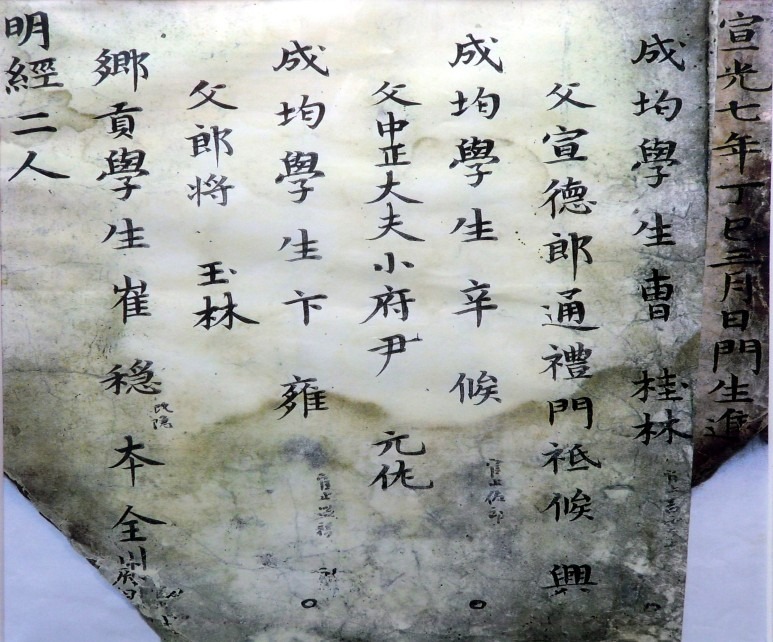 宣光七年丁巳三月日門生進
成均學生曺 桂林
父宣德郎通禮門祗候 興
成均學生辛 候
父中正大夫小府尹 元佐
成均學生卞 雍
父郎将 玉林
鄉貢學生崔 穩 本全州
改隐
明經二人